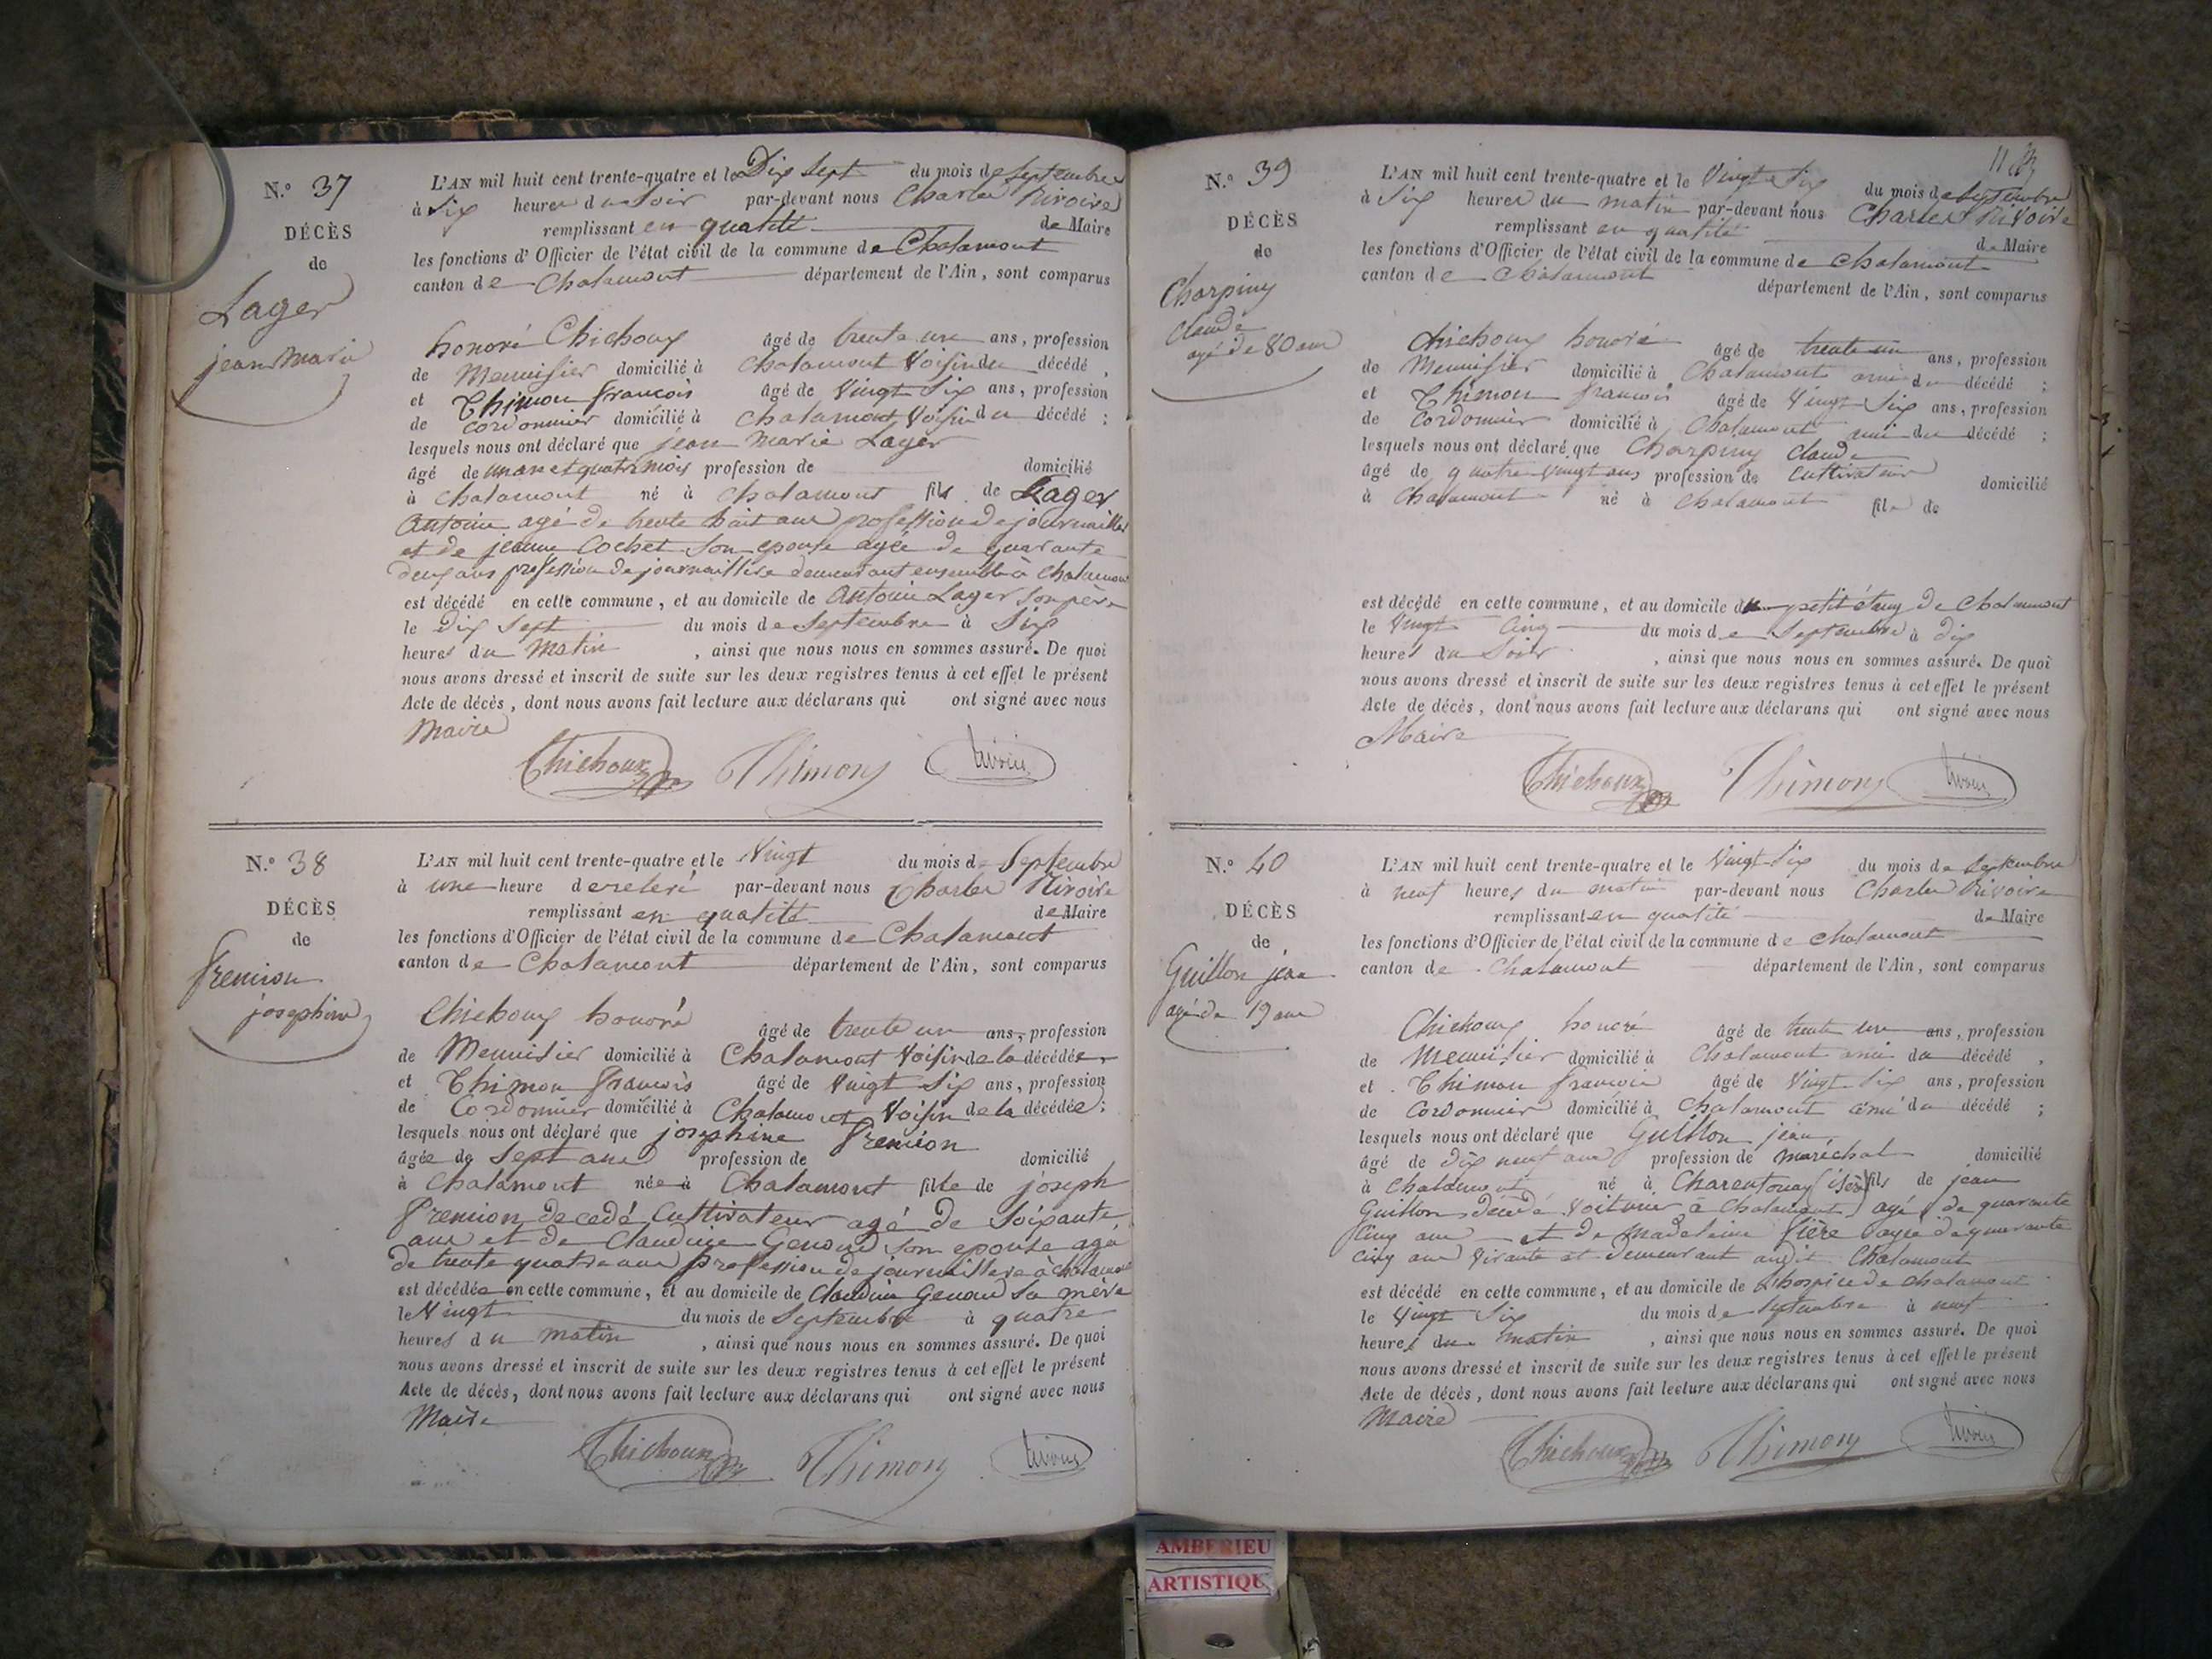 N.° 37
DÉCÈS
de
Lager
jean Marie
L'AN mil huit cent trente-quatre et le Dix Sept du mois de Septembre
à Six heures du Soir par-devant nous Charles Rivoire
remplissant en qualité de Maire
les fonctions d'Officier de l'état civil de la commune de Chalamont
canton de Chalamont département de l'Ain, sont comparus
honoré Chichoux âgé de trente un ans, profession
de Menuisier domicilié à Chalamont Voisin du décédé,
et Thimon francois âgé de Vingt Six ans, profession
de Cordonnier domicilié à Chalamont Voisin du décédé ;
lesquels nous ont déclaré que jean Marie Lager
âgé de un an et quatre mois profession de domicilié
à Chalamont né à Chalamont fils de Lager
Antoine agé de trente huit ans profession de journaillier
et de jeanne Cochet son epouse agée de quarante
deux ans profession de journaillière demeurant ensemble à Chalamont
est décédé en cette commune, et au domicile de Antoine Lager son père
le Dix Sept du mois de Septembre à Six
heures du Matin , ainsi que nous nous en sommes assuré. De quoi
nous avons dressé et inscrit de suite sur les deux registres tenus à cet effet le présent
Acte de décès, dont nous avons fait lecture aux déclarans qui ont signé avec nous
Maire
Chichoux Thimon Rivoire
N.° 38
DÉCÈS
de
Fremion
josephine
L'AN mil huit cent trente-quatre et le Vingt du mois de Septembre
à une heure de releré par-devant nous Charles Rivoire
remplissant en qualité de Maire
les fonctions d'Officier de l'état civil de la commune de Chalamont
canton de Chalamont département de l'Ain, sont comparus
Chichoux honoré âgé de trente un ans, profession
de Menuisier domicilié à Chalamont Voisin de la décédée,
et Thimon francois âgé de Vingt Six ans, profession
de Cordonnier domicilié à Chalamont Voisin de la décédée ;
lesquels nous ont déclaré que josephine Fremion
âgée de Sept ans profession de domicilié
à Chalamont née à Chalamont fille de joseph
Fremion decedé Cultivateur agé de Soixante
ans et de Claudine Genoud son epouse agé
de trente quatre ans profession de journaillere à chalamont
est décédée en cette commune, et au domicile de Claudine Genoud Sa mère
le Vingt du mois de Septembre à quatre
heures du matin , ainsi que nous nous en sommes assuré. De quoi
nous avons dressé et inscrit de suite sur les deux registres tenus à cet effet le présent
Acte de décès, dont nous avons fait lecture aux déclarans qui ont signé avec nous
Maire
Chichoux Thimon Rivoire
11
N.° 39
DÉCÈS
de
Charpiny
Claude
agé de 80 ans
L'AN mil huit cent trente-quatre et le Vingt Six du mois de Septembre
à Six heures du matin par-devant nous Charles Rivoire
remplissant en qualité de Maire
les fonctions d'Officier de l'état civil de la commune de Chalamont
canton de Chalamont département de l'Ain, sont comparus
Chichoux honoré âgé de trente un ans, profession
de Menuisier domicilié à Chalamont ami du décédé ;
et Thimon francois âgé de Vingt Six ans, profession
de Cordonnier domicilié à Chalamont ami du décédé ;
lesquels nous ont déclaré que Charpiny Claude
âgé de quatre vingt ans profession de Cultivateur domicilié
à Chalamont né à Chalamont fils de
est décédé en cette commune, et au domicile du petit étang de Chalamont
le Vingt Cinq du mois de Septembre à dix
heures du Soir , ainsi que nous nous en sommes assuré. De quoi
nous avons dressé et inscrit de suite sur les deux registres tenus à cet effet le présent
Acte de décès, dont nous avons fait lecture aux déclarans qui ont signé avec nous
Maire
Chichoux Thimon Rivoire
N.° 40
DÉCÈS
de
Guillon jean
agé de 19 ans
L'AN mil huit cent trente-quatre et le Vingt Six du mois de Septembre
à neuf heures du matin par-devant nous Charles Rivoire
remplissant en qualité de Maire
les fonctions d'Officier de l'état civil de la commune de Chalamont
canton de Chalamont département de l'Ain, sont comparus
Chichoux honoré âgé de trente un ans, profession
de Menuisier domicilié à Chalamont ami du décédé ,
et Thimon francois âgé de Vingt Six ans, profession
de Cordonnier domicilié à Chalamont ami du décédé ;
lesquels nous ont déclaré que Guillon jean
âgé de dix neuf ans profession de maréchal domicilié
à Chalamont né à Charentonay (isère) fils de jean
Guillon décédé Voiturier à Chalamont agé de quarante
Cinq ans et de Madeleine fière agée de quarante
Cinq ans Vivante et demeurant audit Chalamont
est décédé en cette commune, et au domicile de L'hospice de Chalamont
le Vingt Six du mois de Septembre à neuf
heures du matin , ainsi que nous nous en sommes assuré. De quoi
nous avons dressé et inscrit de suite sur les deux registres tenus à cet effet le présent
Acte de décès, dont nous avons fait lecture aux déclarans qui ont signé avec nous
Maire
Chichoux Thimon Rivoire
AMBERIEU
ARTISTIQU